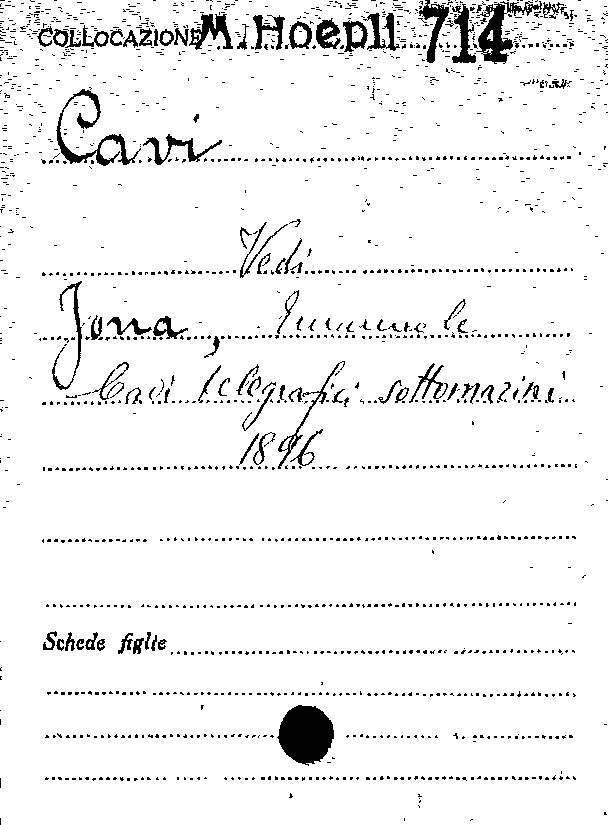 COLLOCAZIONE M. Hoepli 714
Cavi
Vedi
Jona, Emanuele
Cavi telegrafici sottomarini
1896
Schede figlie